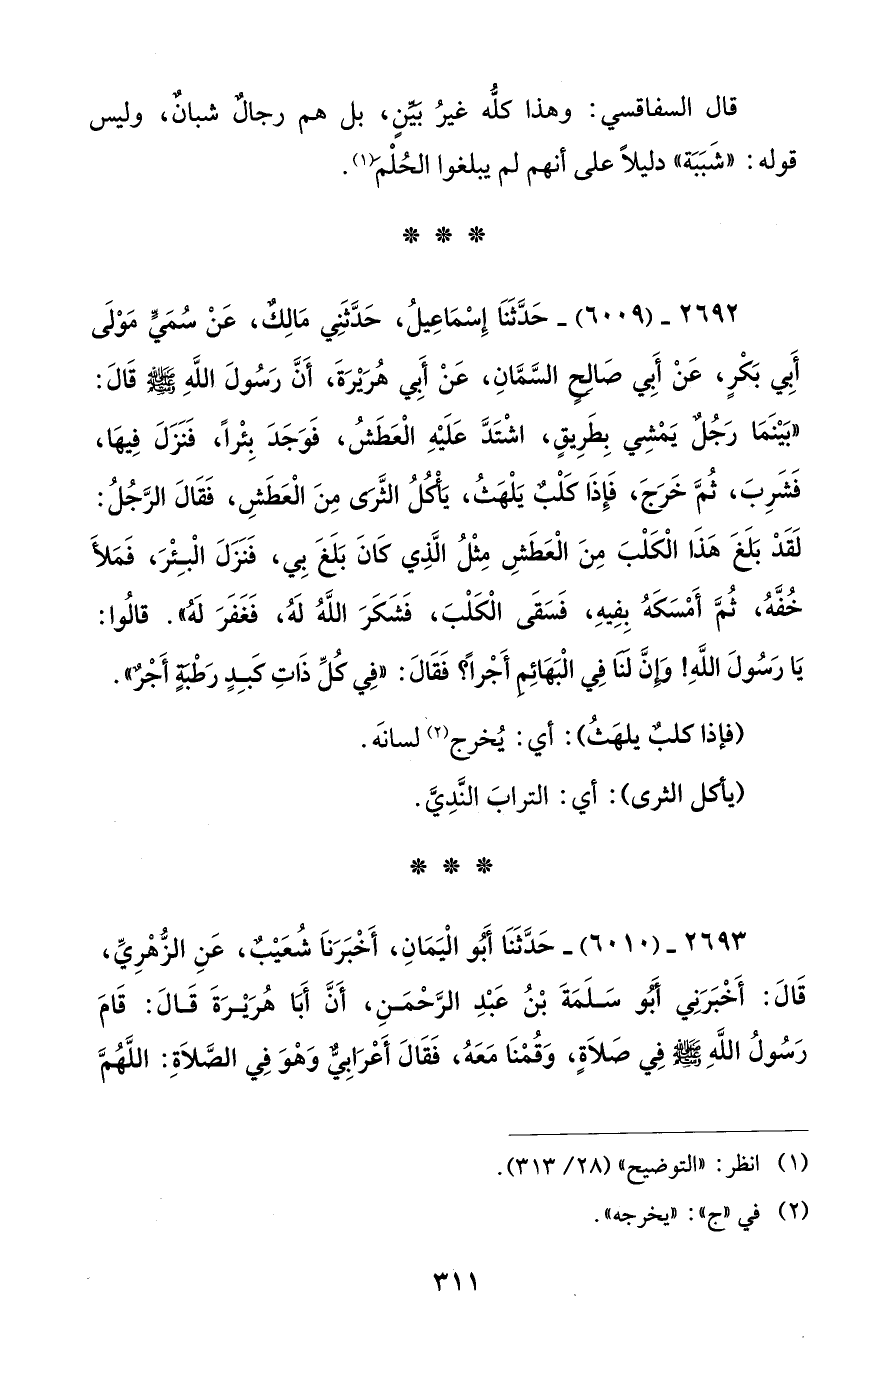 قال السفاقسي: وهذا كلُّه غيرُ بَيِّنٍ، بل هم رجالٌ شبانٌ، وليس
قوله: «شَبَبَة» دليلاً على أنهم لم يبلغوا الحُلْم(١).
* * *
٢٦٩٢ ـ (٦٠٠٩) ـ حَدَّثَنَا إِسْمَاعِيلُ، حَدَّثَنِي مَالِكٌ، عَنْ سُمَيٍّ مَوْلَى
أَبِي بَكْرٍ، عَنْ أَبِي صَالِحٍ السَّمَّانِ، عَنْ أَبِي هُرَيْرَةَ، أَنَّ رَسُولَ اللَّهِ ﷺ قَالَ:
«بَيْنَمَا رَجُلٌ يَمْشِي بِطَرِيقٍ، اشْتَدَّ عَلَيْهِ الْعَطَشُ، فَوَجَدَ بِئْراً، فَنَزَلَ فِيهَا،
فَشَرِبَ، ثُمَّ خَرَجَ، فَإِذَا كَلْبٌ يَلْهَثُ، يَأْكُلُ الثَّرَى مِنَ الْعَطَشِ، فَقَالَ الرَّجُلُ:
لَقَدْ بَلَغَ هَذَا الْكَلْبَ مِنَ الْعَطَشِ مِثْلُ الَّذِي كَانَ بَلَغَ بِي، فَنَزَلَ الْبِئْرَ، فَمَلأَ
خُفَّهُ، ثُمَّ أَمْسَكَهُ بِفِيهِ، فَسَقَى الْكَلْبَ، فَشَكَرَ اللَّهُ لَهُ، فَغَفَرَ لَهُ». قالُوا:
يَا رَسُولَ اللَّهِ! وَإِنَّ لَنَا فِي الْبَهَائِمِ أَجْراً؟ فَقَالَ: «فِي كُلِّ ذَاتِ كَبِدٍ رَطْبَةٍ أَجْرٌ».
(فإذا كلبٌ يلهَثُ): أي: يُخرج(٢) لسانَه.
(يأكل الثرى): أي: الترابَ النَّدِيَّ.
* * *
٢٦٩٣ ـ (٦٠١٠) ـ حَدَّثَنَا أَبُو الْيَمَانِ، أَخْبَرَنَا شُعَيْبٌ، عَنِ الزُّهْرِيِّ،
قَالَ: أَخْبَرَنِي أَبُو سَلَمَةَ بْنُ عَبْدِ الرَّحْمَنِ، أَنَّ أَبَا هُرَيْرَةَ قَالَ: قَامَ
رَسُولُ اللَّهِ ﷺ فِي صَلاَةٍ، وَقُمْنَا مَعَهُ، فَقَالَ أَعْرَابِيٌّ وَهْوَ فِي الصَّلاَةِ: اللَّهُمَّ
(١) انظر: «التوضيح» (٢٨/ ٣١٣).
(٢) في «ج»: «يخرجه».
٣١١